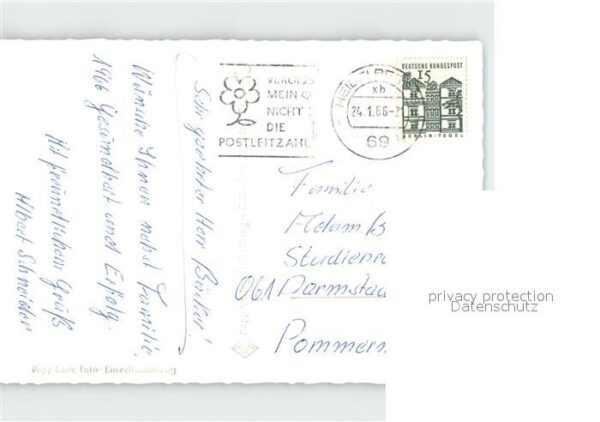 Sehr geehrter Herr Böcker!
Wünsche Ihnen nebst Familie
1966 Gesundheit und Erfolg.
Mit freundlichem Gruß
Albert Schneider
VERGISS
MEIN
NICHT
DIE
POSTLEITZAHL
HEIDELBERG
xb
24.1.66-21
69
DEUTSCHE BUNDESPOST
15
BERLIN-TEGEL
Familie
Adam
Studienra
061 Darmstad
Pommern
privacy protection
Datenschutz
Foto-Einzelhandzug